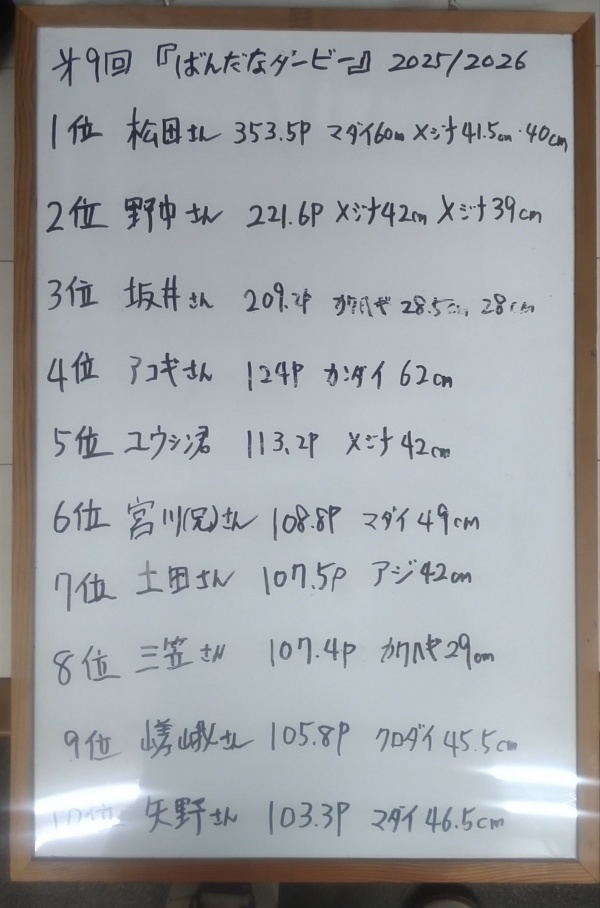 第9回『ばんだなダービー』2025/2026
1位 松田さん 353.5P マダイ60cm メジナ41.5cm・40cm
2位 野中さん 221.6P メジナ42cm メジナ39cm
3位 坂井さん 209.2P カワハギ 28.5cm, 28cm
4位 アコギさん 124P カンダイ 62cm
5位 ユウシン君 113.2P メジナ42cm
6位 宮川(兄)さん 108.8P マダイ49cm
7位 土田さん 107.5P アジ42cm
8位 三笠さん 107.4P カワハギ29cm
9位 嵯峨さん 105.8P クロダイ45.5cm
10位 矢野さん 103.3P マダイ46.5cm